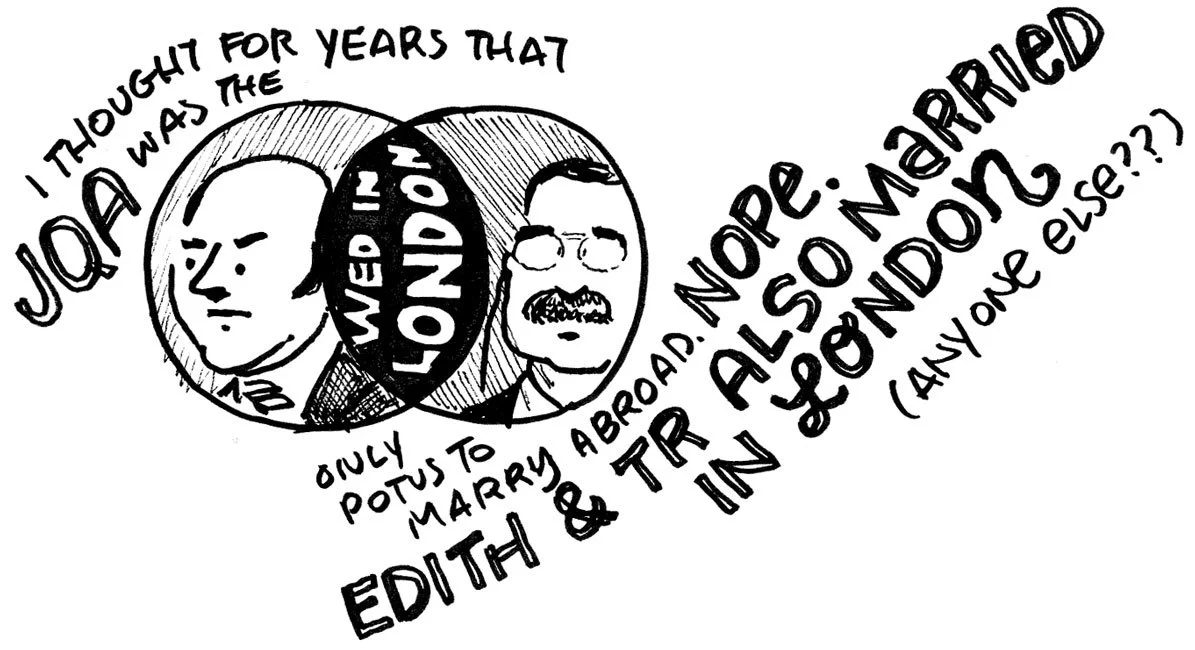 I THOUGHT FOR YEARS THAT
JQA WAS THE
WED IN
LONDON
ONLY
POTUS TO
MARRY ABROAD. NOPE.
EDITH & TR ALSO MARRIED
IN LONDON
(ANYONE ELSE???)